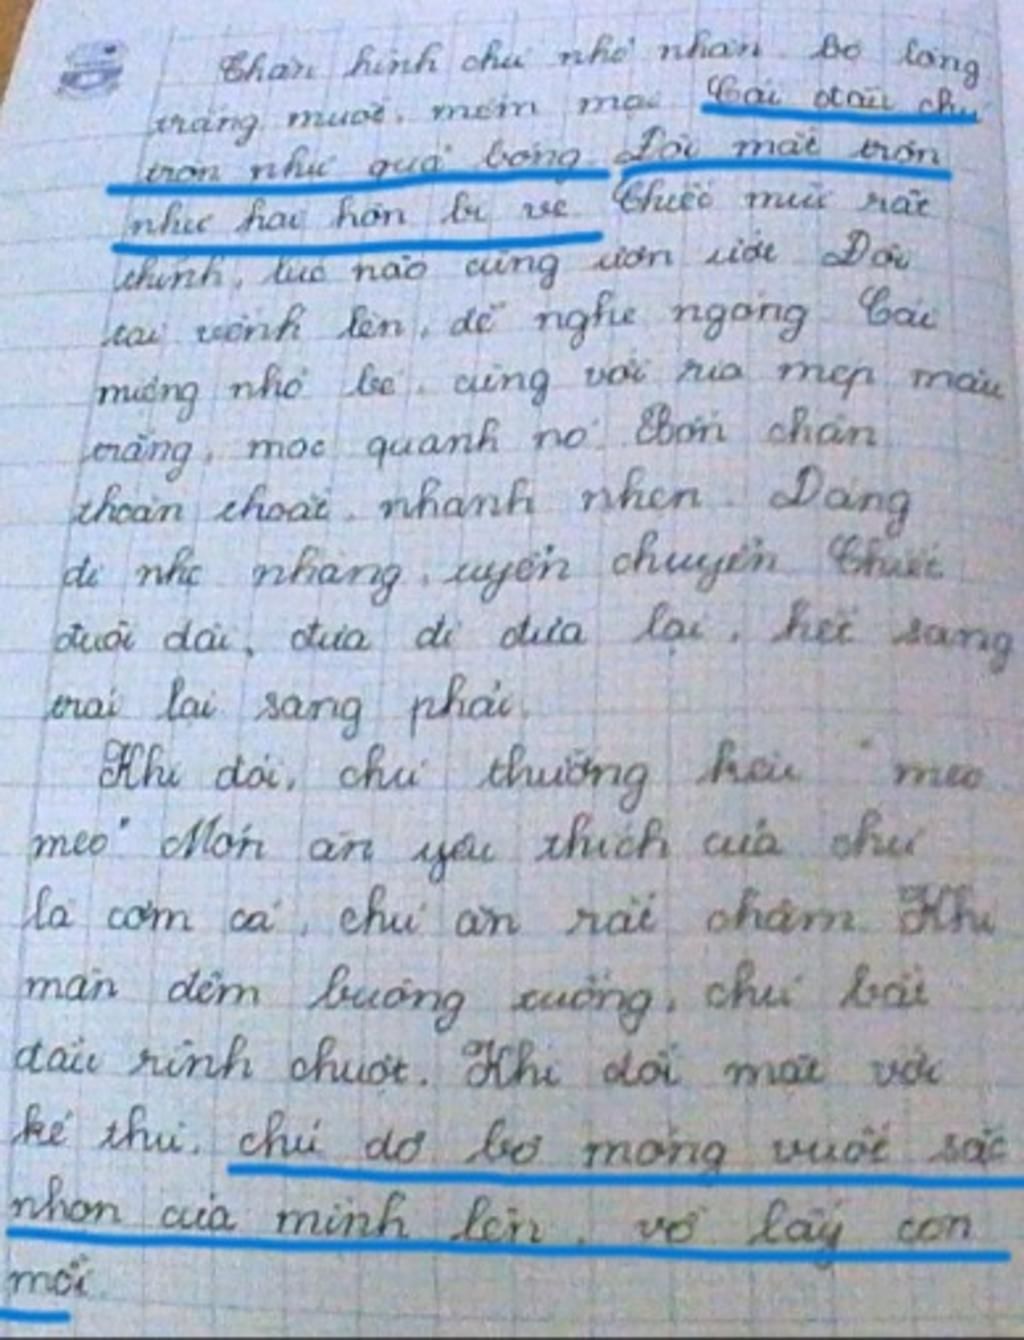 Thân hình chú nhỏ nhắn. Bộ lông
trắng muốt, mềm mại. Cái đầu chú
tròn như quả bóng. Đôi mắt tròn
như hai hòn bi ve. Chiếc mũi rất
thính, lúc nào cũng ươn ướt. Đôi
tai vểnh lên, để nghe ngóng. Cái
miệng nhỏ bé, cùng với ria mép màu
trắng, mọc quanh nó. Bốn chân
thoăn thoắt, nhanh nhẹn. Dáng
đi nhẹ nhàng, uyển chuyển. Chiếc
đuôi dài, đưa đi đưa lại, hết sang
trái lại sang phải.
Khi đói, chú thường kêu "meo
meo". Món ăn yêu thích của chú
là cơm cá, chú ăn rất chậm. Khi
màn đêm buông xuống, chú bắt
đầu rình chuột. Khi đối mặt với
kẻ thù, chú dơ bộ móng vuốt sắc
nhọn của mình lên, vồ lấy con
mồi.